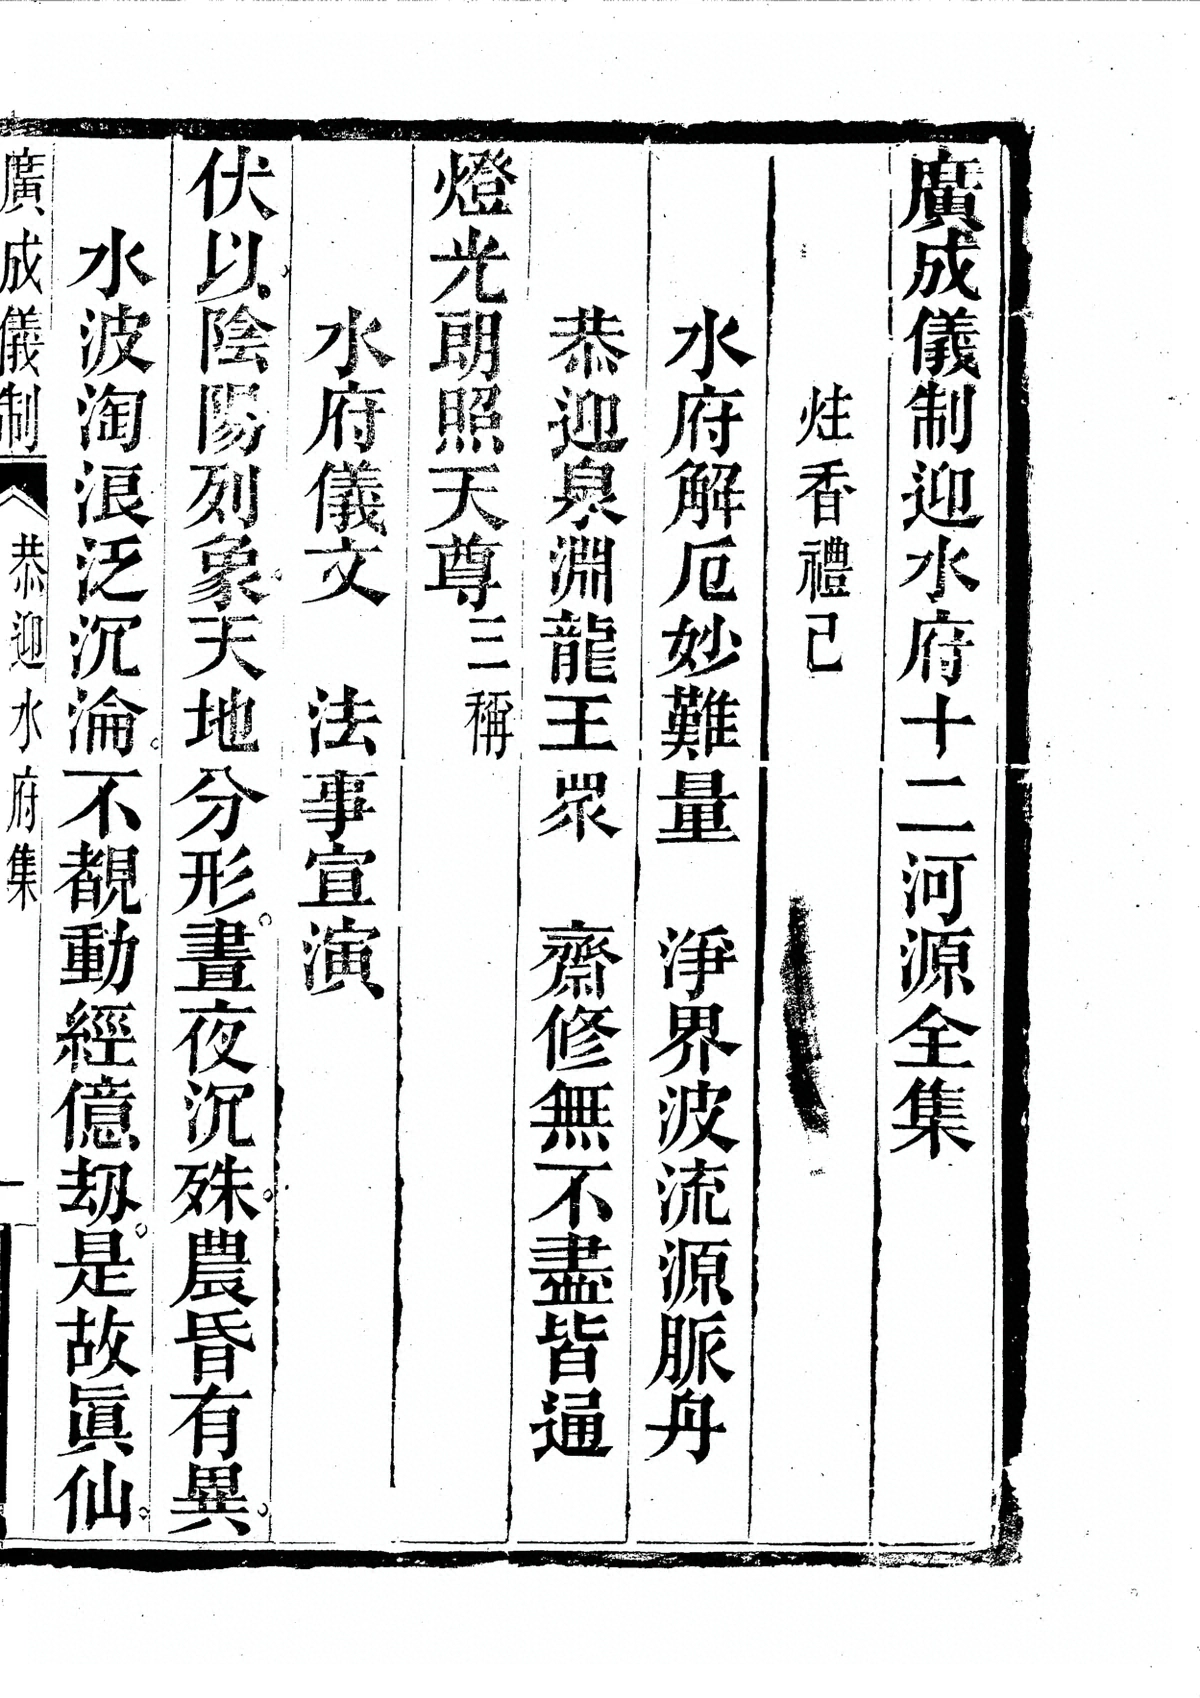 廣成儀制迎水府十二河源全集
炷香禮己
水府解厄妙難量　淨界波流源脈丹
恭迎泉淵龍王眾　齋修無不盡皆通
燈光朗照天尊三稱
水府儀文　法事宣演
伏以陰陽列象天地分形晝夜沉殊農昏有異
水波淘浪泛沉淪不覩動經億劫是故眞仙
廣成儀制　恭迎水府集　一